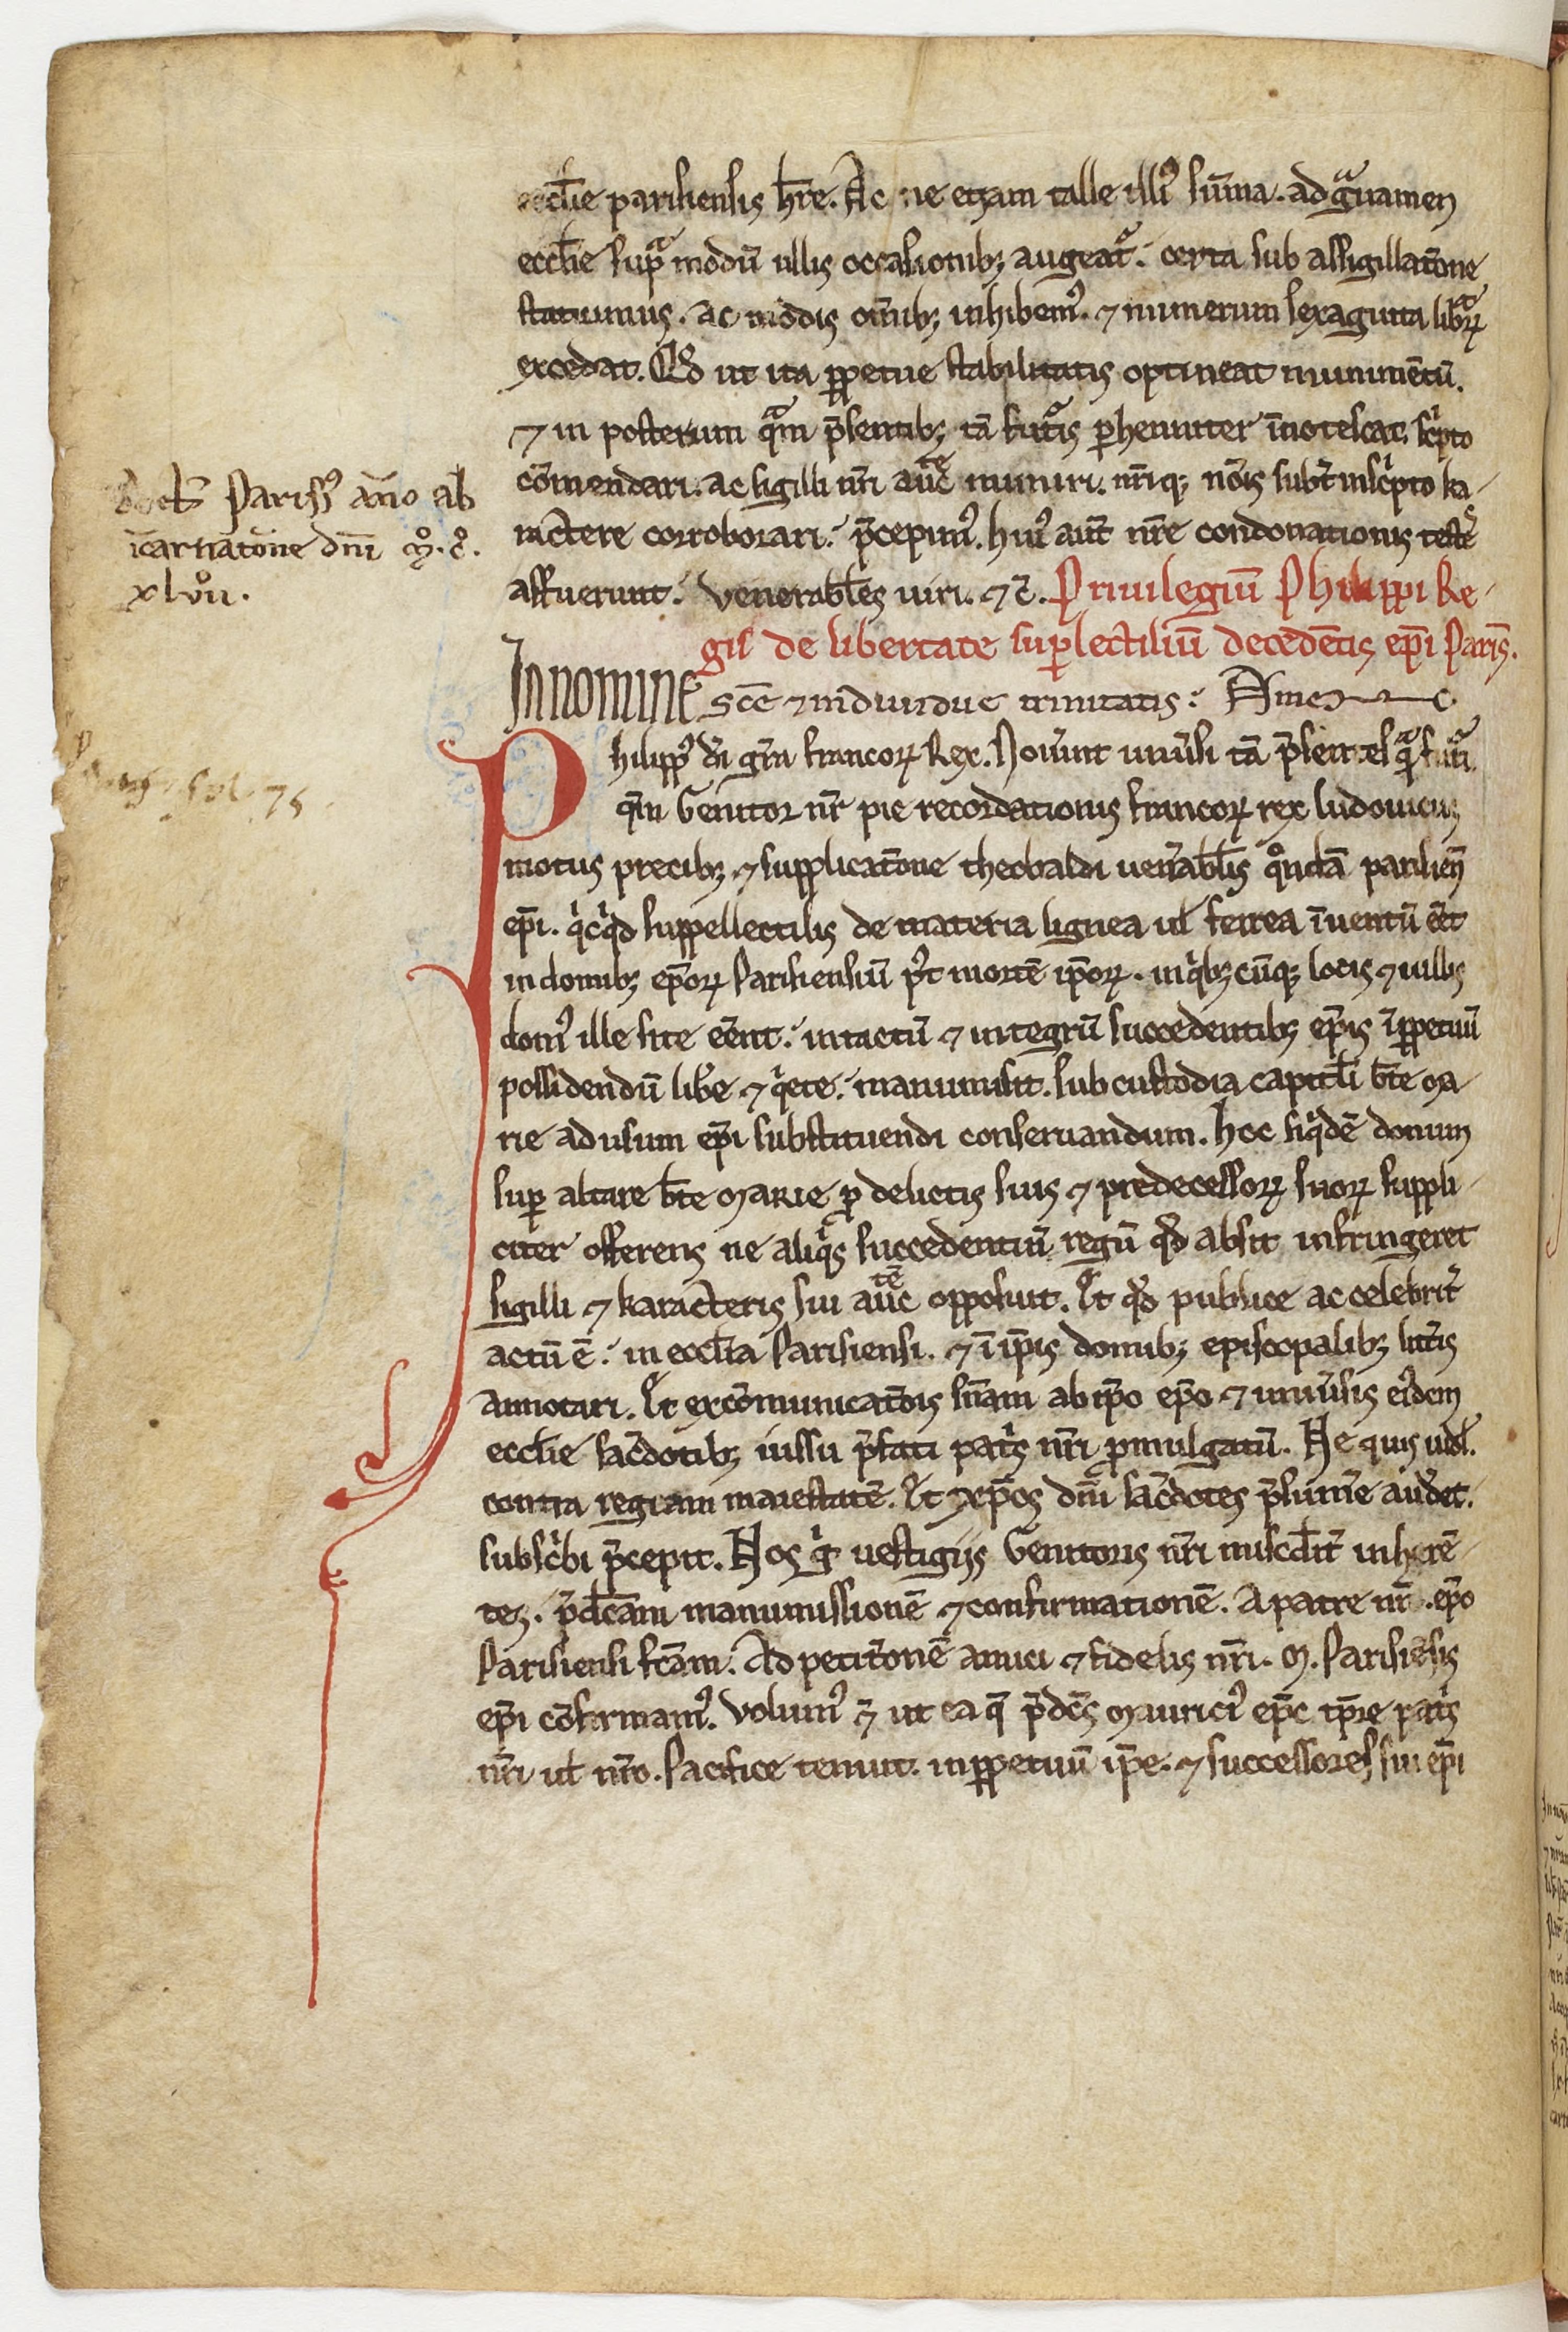 eccl̄ie parisiensis hr̄e. Ac ne etiam tallie illiꝰ sum̄a. ad gͣuamen
eccl̄ie supͣ modū ullis occasionibꝫ augeatᷣ. certa sub assigillat̄one
statuimus. ac modis om̄ibꝫ inhibemꝰ. ⁊ numerum sexaginta librꝝ
excedat. Qd̄ ut ita ꝑpetue stabilitatis optineat munimentū.
⁊ in posterum qͣm p̄sentibꝫ tā futᷣis ꝑhenniter īnotescat. scͥpto
cōmendari. ac sigilli nr̄i auc̄te muniri. nr̄iqꝫ noīs subt̾ inscͥpto ka-
ractere corroborari. p̄cepimꝰ. huiꝰ aut̄ nr̄e condonationis testes
affuerunt. Venerabl̄es uiri. ⁊ c̄. Priuilegiū Philippi Re-
gis de libertate suꝑlectiliū decedētis ep̄i Paris̄.
In nomine sc̄e ⁊ indiuidue trinitatis. Amen
Philippꝰ dī gr̄a francoꝝ Rex. Nouīnt uniūsi tā p̄sentes qͣ futᷣi.
qm̄ Genitor nr̄ pie recordationis francoꝝ rex ludouicus
motus precibꝫ ⁊ supplicat̄one theobaldi uen̄abl̄is qͦndā parisien̄
ep̄i. qͥcqͥd suppellectilis de materia lignea ul̄ ferrea īuentū eēt
in domibꝫ ep̄oꝝ Parisiensiū pꝰt mortē ip̄oꝝ. in qͥbꝫcūqꝫ locis ⁊ uillis
domꝰ ille site eēnt. intactū ⁊ integrū succedentibꝫ ep̄is īꝑpetuū
possidendū libe ⁊ qͥete. manumisit. sub custodia capitl̄i bt̄e Ma-
rie ad usum ep̄i substituendi conseruandum. hoc siqͥdē donum
suꝑ altare bt̄e MARIE ꝓ delictis suis ⁊ predecessoꝝ suoꝝ suppli-
citer offerens ne aliqͥs succedentiū regū qd̄ absit infringeret
sigilli ⁊ karacteris sui auc̄te opposuit. Et qd̄ publice ac celebrit̾
actū ē. in eccl̄ia Parisiensi. ⁊ ī ip̄is domibꝫ episcopalibꝫ litt̾is
annotari. Et excōmunicat̄ois sn̄iam ab ip̄o ep̄o ⁊ uniūsis eidem
eccl̄ie sac̄dotibꝫ iussu p̄fati patͥs nr̄i ꝓmulgatū. Ne quis ud̄l.
contra regiam maiestatē. Et xp̄os dn̄i sac̄dotes p̄sum̄e aud̾et.
subscͥbi p̄cepit. Nos gͥ uestigijs Genitoris nr̄i misc̄dit̾ inherē-
tes. p̄dc̄am manumissionē ⁊ confirmationē. A patre nr̄o. ep̄o
Parisiensi fc̄am. Ad petit̄onē amici ⁊ fidelis nr̄i. M. Parisiēsis
ep̄i cōfirmamꝰ. Volumꝰ ⁊ ut ea q̄ p̄dc̄s Mauriciꝰ ep̄c tp̄re patͥs
nr̄i ul̄ nr̄o. Pacifice tenuit. inꝑpetuū ip̄e. ⁊ successores sui ep̄i
Parisꝰ an̄o ab
īcarnatōne dn̄i Mͦ. Cͦ.
xlvͦii.
fol. 75